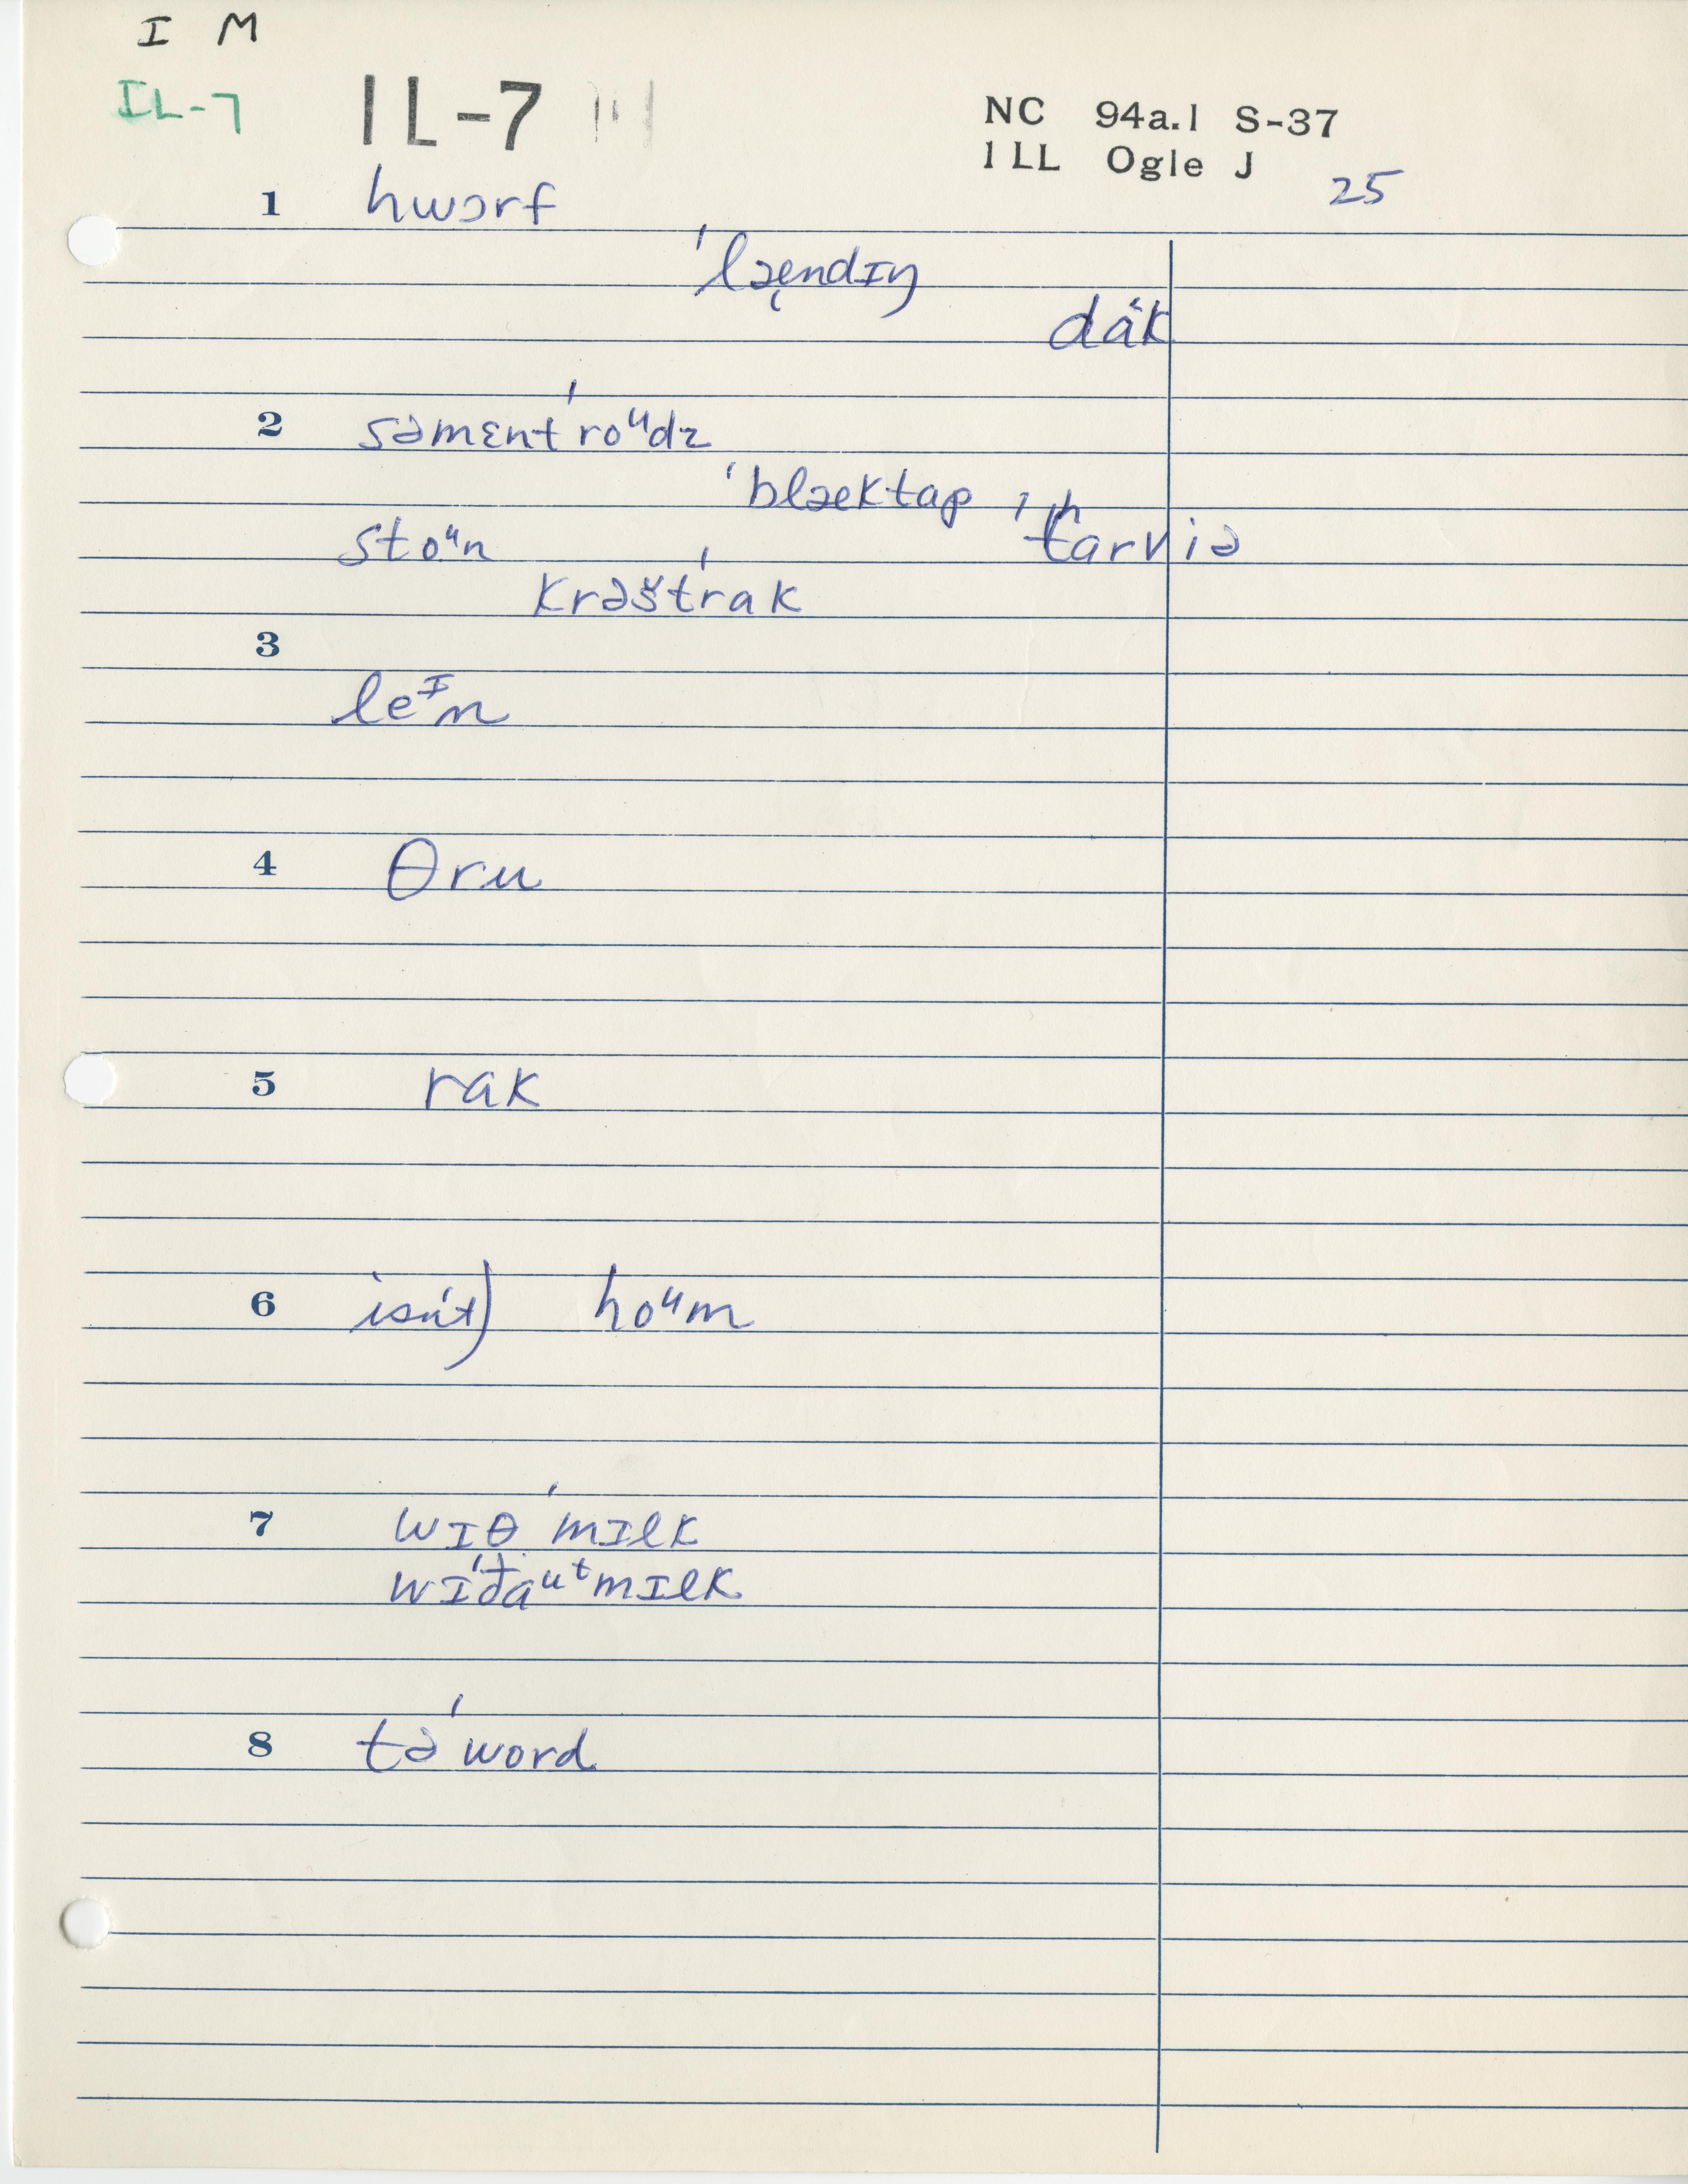 I M
IL-7 IL-7 NC 94a.1 S-37
1 LL Ogle J 25
1 hwɔrf
ˈlæ̨ndɪŋ
däk
2 səmɛntˈroᵘdz
ˈblæktap
stoᵘn ˈtʰarviə
krəšˈtrak
3
leᴵn
4 θru
5 rak
6 isn't) hoᵘm
7 wɪθ ˈmɪlk
wɪˈðaᵘᵗmɪlk
8 təˈword